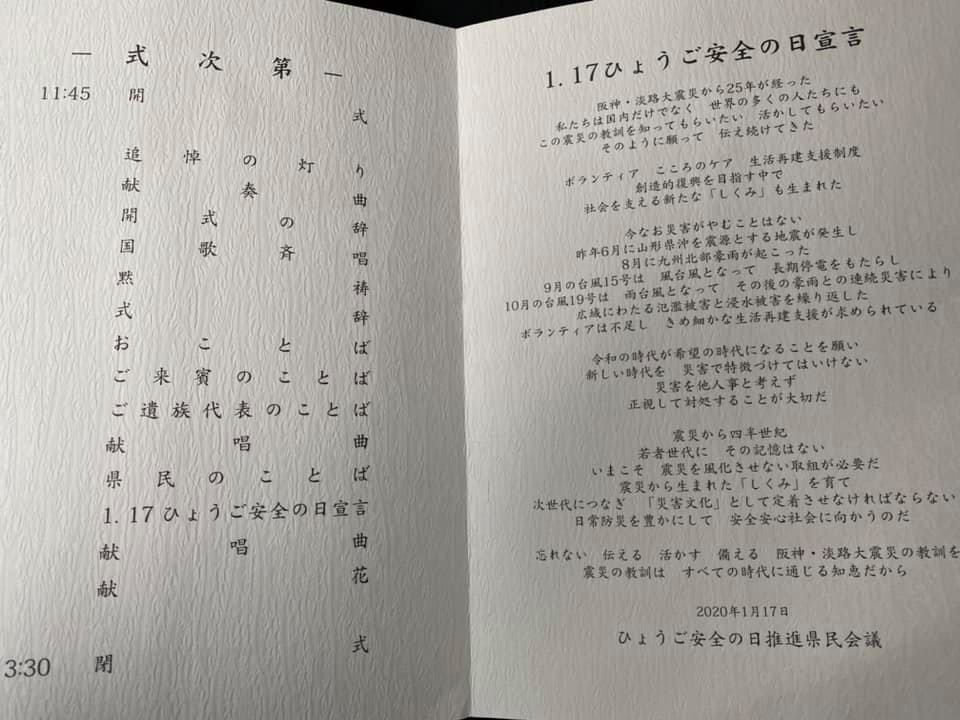 — 式次第 —
11:45 開式
追悼の灯り
献奏曲
開式の辞
国歌斉唱
黙祷
式辞
おことば
ご来賓のことば
ご遺族代表のことば
献唱曲
県民のことば
1.17ひょうご安全の日宣言
献唱曲
献花
3:30 閉式
1.17ひょうご安全の日宣言
阪神・淡路大震災から25年が経った
私たちは国内だけでなく　世界の多くの人たちにも
この震災の教訓を知ってもらいたい　活かしてもらいたい
そのように願って　伝え続けてきた
ボランティア　こころのケア　生活再建支援制度
創造的復興を目指す中で
社会を支える新たな「しくみ」も生まれた
今なお災害がやむことはない
昨年6月に山形県沖を震源とする地震が発生し
8月に九州北部豪雨が起こった
9月の台風15号は　風台風となって　長期停電をもたらし
10月の台風19号は　雨台風となって　その後の豪雨との連続災害により
広域にわたる氾濫被害と浸水被害を繰り返した
ボランティアは不足し　きめ細かな生活再建支援が求められている
令和の時代が希望の時代になることを願い
新しい時代を　災害で特徴づけてはいけない
災害を他人事と考えず
正視して対処することが大切だ
震災から四半世紀
若者世代に　その記憶はない
いまこそ　震災を風化させない取組が必要だ
震災から生まれた「しくみ」を育て
次世代につなぎ　「災害文化」として定着させなければならない
日常防災を豊かにして　安全安心社会に向かうのだ
忘れない　伝える　活かす　備える　阪神・淡路大震災の教訓を
震災の教訓は　すべての時代に通じる知恵だから
2020年1月17日
ひょうご安全の日推進県民会議